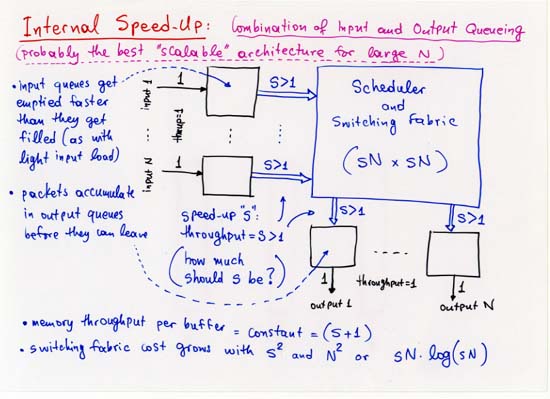 Internal Speed-Up: Combination of Input and Output Queueing
(probably the best "scalable" architecture for large N)
• input queues get
emptied faster
than they get
filled (as with
light input load)
• packets accumulate
in output queues
before they can leave
input 1
1
S>1
thruput=1
input N
1
S>1
Scheduler
and
Switching Fabric
(sN x sN)
speed-up "s":
throughput = S>1
(how much
should s be?)
S>1
S>1
throughput=1
1
1
output 1
output N
• memory throughput per buffer = constant = (s+1)
• switching fabric cost grows with s² and N² or sN·log(sN)